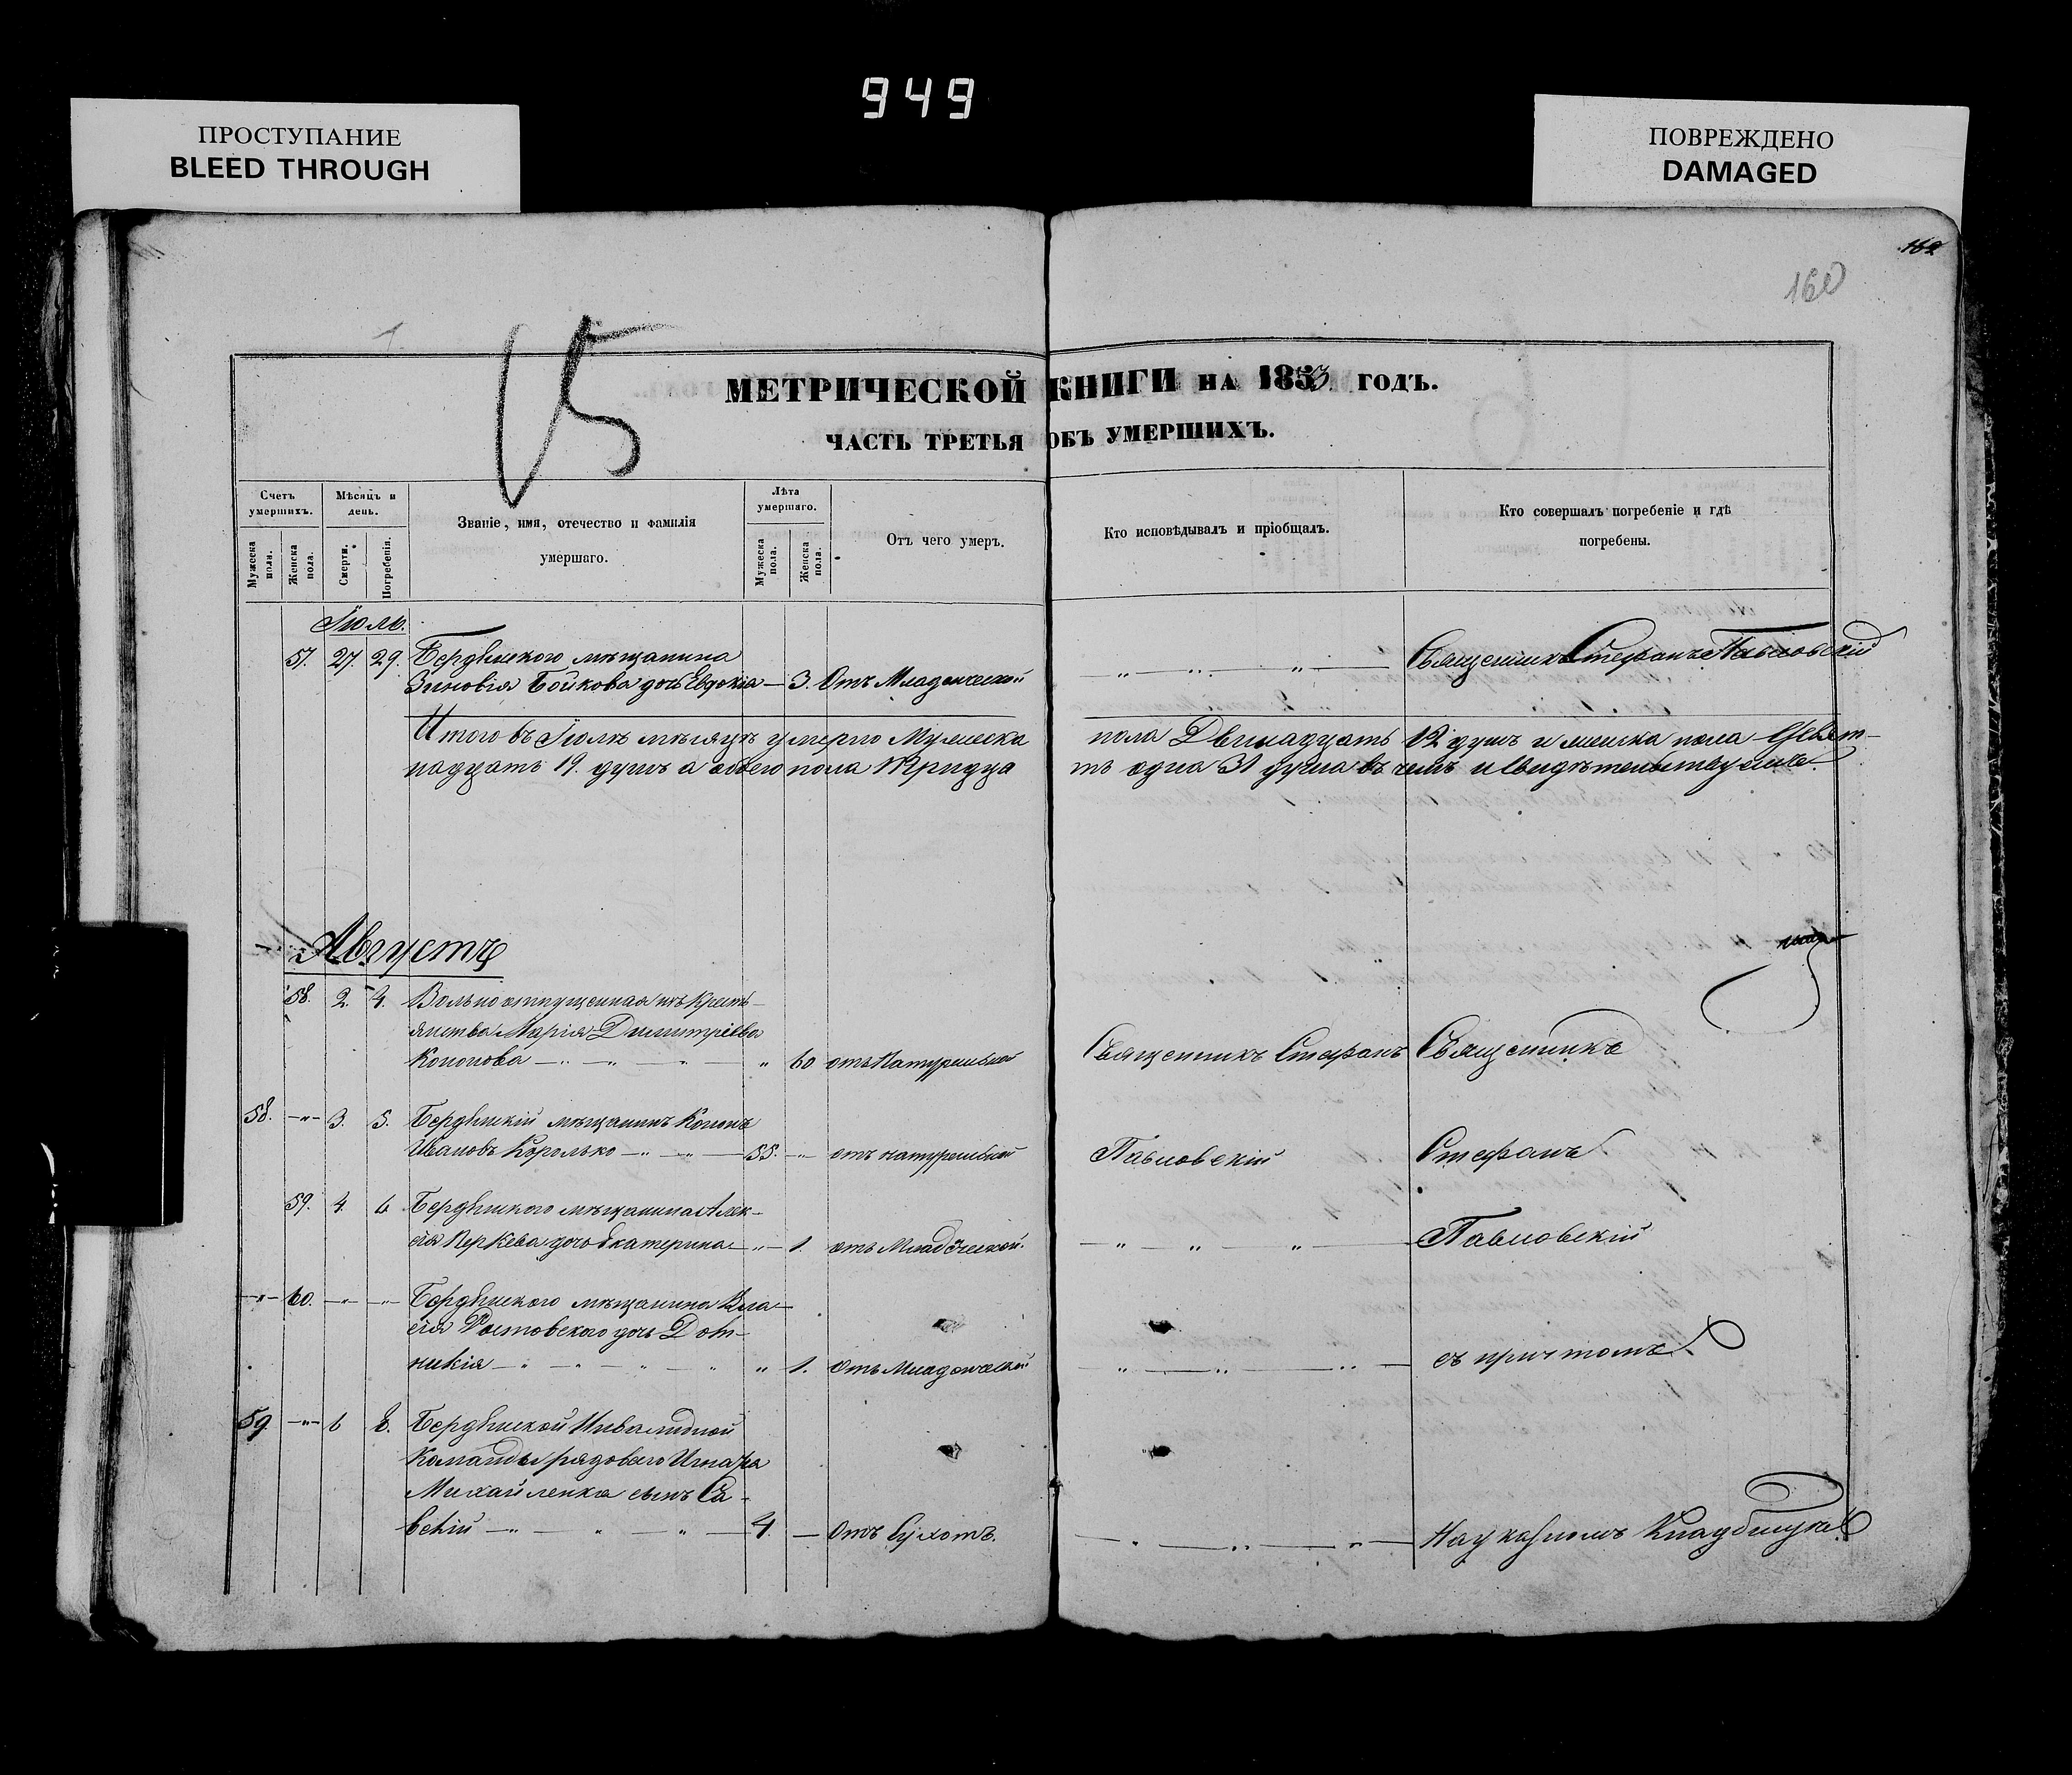 949
ПРОСТУПАНИЕ
BLEED THROUGH
ПОВРЕЖДЕНО
DAMAGED
160
15
МЕТРИЧЕСКОЙ КНИГИ НА 1853. ГОДЪ.
ЧАСТЬ ТРЕТЬЯ ОБЪ УМЕРШИХЪ.
Счетъ умершихъ.
Мужеска пола.
Женска пола.
Мѣсяцъ и день.
Смерти.
Погребенія.
Званіе, имя, отечество и фамилія
умершаго.
Лѣта умершаго.
Мужеска пола.
Женска пола.
Отъ чего умеръ.
Кто исповѣдывалъ и пріобщалъ.
Кто совершалъ погребеніе и гдѣ
погребены.
Іюль.
57. 27. 29. Бердянскаго мѣщанина Священникъ Стефанъ Павловскій
Зиновія Бойкова дочь Евдокія — 3. Отъ Младенческой
Итого въ Іюлѣ мѣсяцѣ умерло Мужеска пола Двенадцать 12 душъ и женска пола Девят-
надцать 19. душъ а обоего пола Тридца ть одна 31 душа въ чемъ и свидѣтельствуемъ.
Августъ
58. 2. 4. Вольноотпущенная изъ крестъ-
янства Марія Димитріева
Кононова — " — " — " 60 отъ Натуральной Священникъ Стефанъ Священникъ
58. — 3. 5. Бердянскій мѣщанинъ Кононъ
Ивановъ Королько — " — 55. — отъ натуральной Павловскій Стефанъ
59. 4. 6 Бердянскаго мѣщанина Алек-
сія дочь Екатерина — " — 1. отъ Младенческой. — " — " — " — Павловскій
— " — 60. — " — " — Бердянскаго мѣщанина Вла-
сія Ростовскаго дочь Дом-
никія — " — " — " — " 1. отъ Младенческой " — " — " — съ причтомъ
59 — " — 6 8. Бердянской Инвалидной
Команды рядоваго
Михайленка сынъ Са-
ветій — " — " — " — 4. — Отъ Сухотъ. — " — " — " — На кладбищѣ